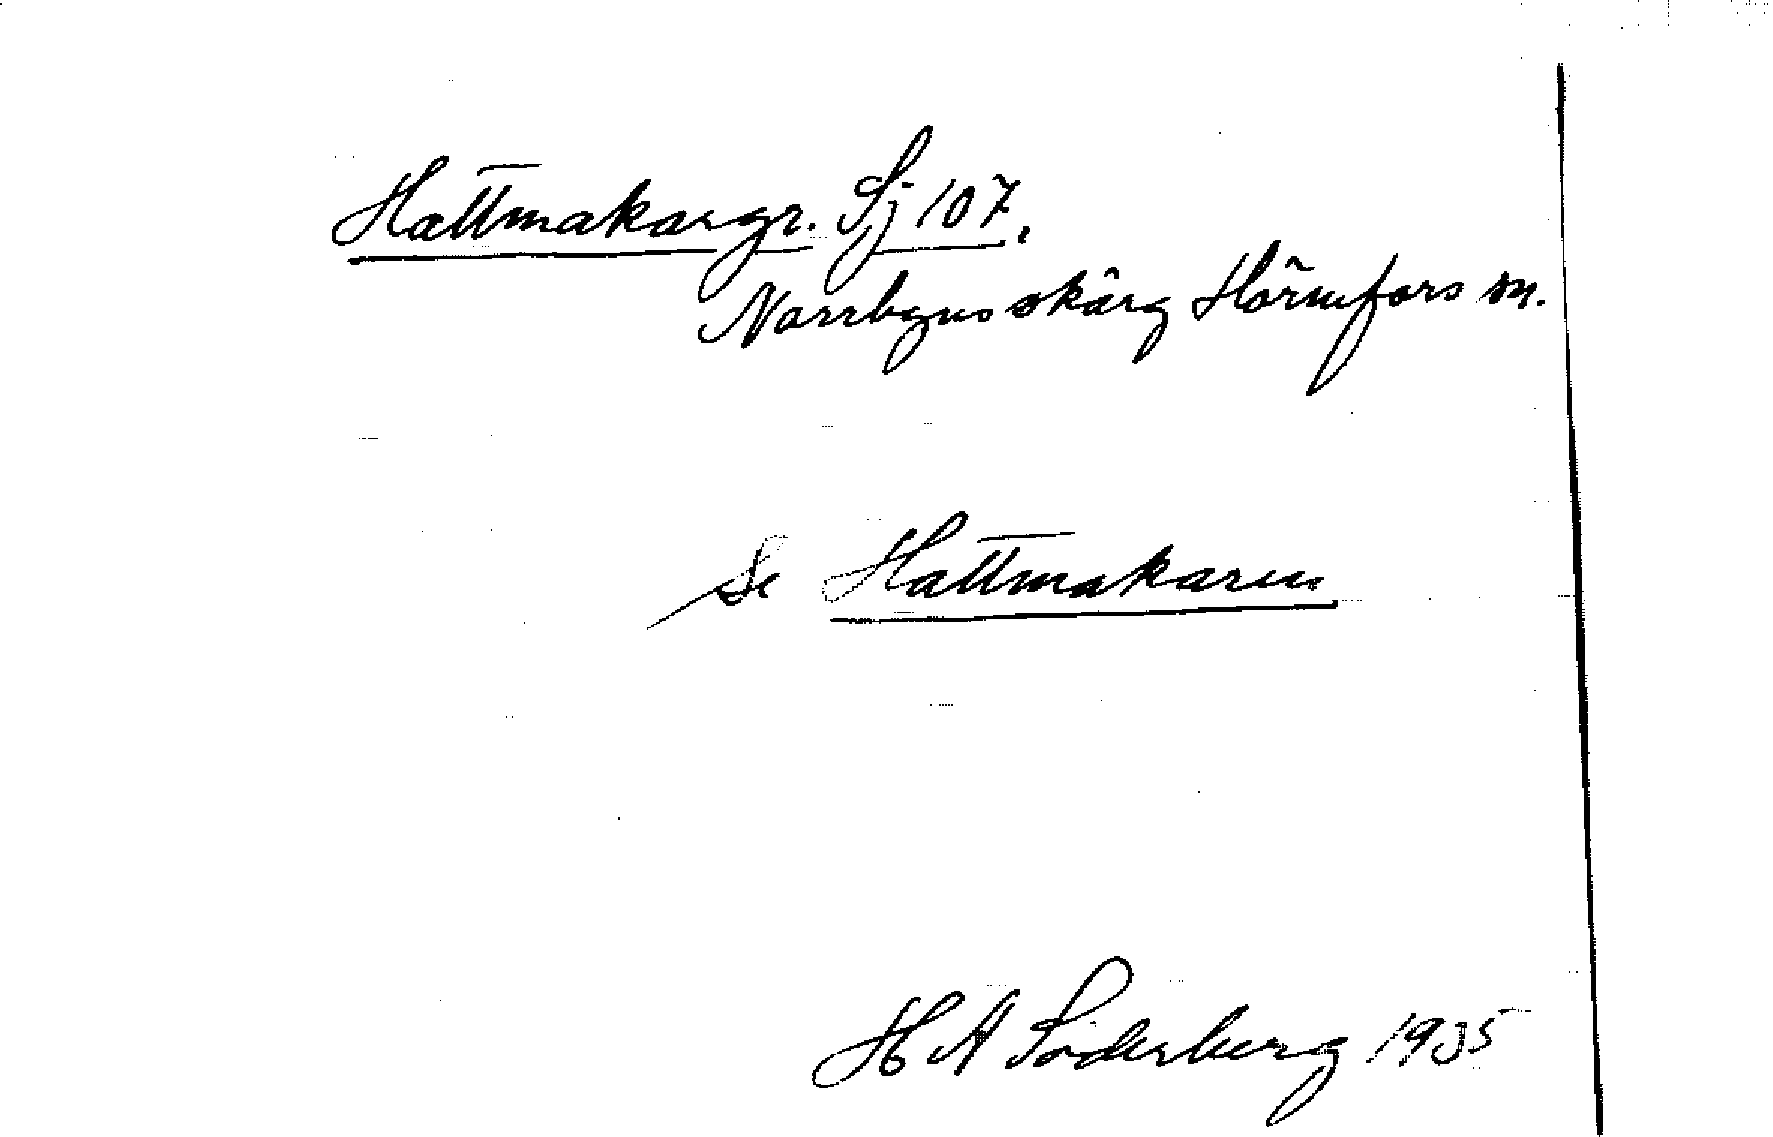 Hattmakargr. Sj 107.
Norrbyns skärg Hörnefors sn.
Se Hattmakaren
H A Söderberg 1935